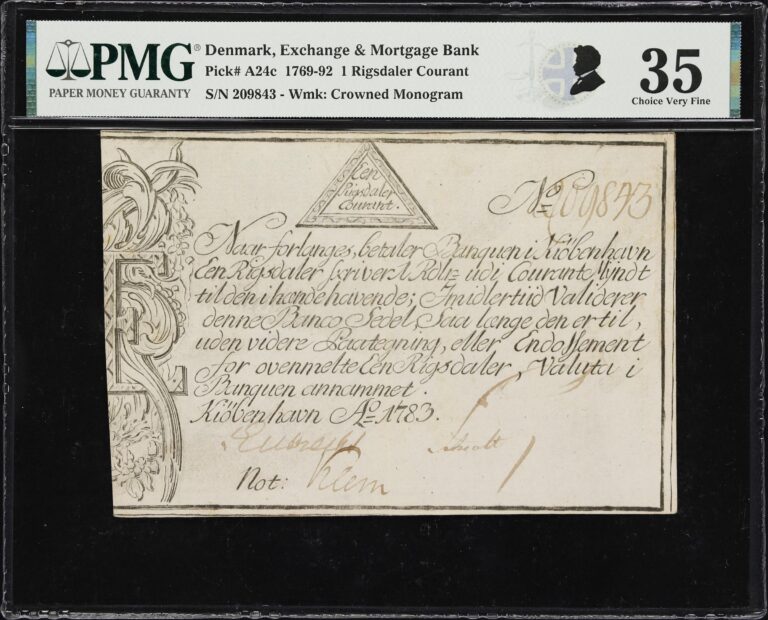 PMG®
PAPER MONEY GUARANTY
Denmark, Exchange & Mortgage Bank
Pick# A24c 1769-92 1 Rigsdaler Courant
S/N 209843 - Wmk: Crowned Monogram
35
Choice Very Fine
Een
Rigsdaler
Courant.
No 209843
Naar forlanges, betaler Banquen i Kiöbenhavn
Een Rigsdaler skriver 1 Rdlr udi Courant Myndt
til den ihændehavende; Imidlertiid Validerer
denne Banco Sedel, Saa længe den er til,
uden videre Paategning, eller Endossement
for ovenmelte Een Rigsdaler, Valuta i
Banquen annammet.
Kiöbenhavn Ao 1783.
Not: Klem